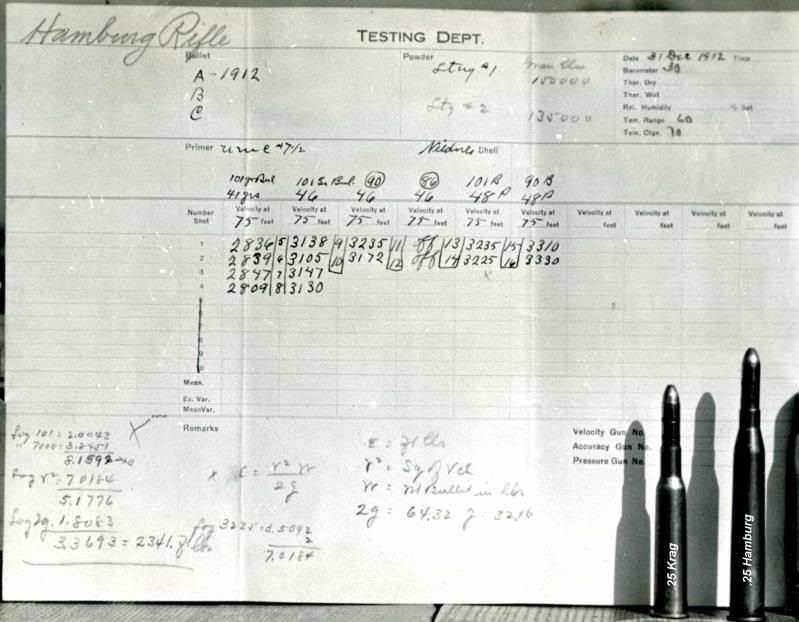 Hamburg Rifle
TESTING DEPT.
Bullet
A - 1912
B
C
Powder
#1
150000
#2
135000
Date 31 Dec 1912 Time
Barometer 30
Ther. Dry
Ther. Wet
Rel. Humidity % Sat.
Tem. Range 60
Tem. Ctge. 70
Primer UMC #7 1/2
Niedner Shell
101 gr Bul 101 Bul. 90 86 101 B 90 B
41 grs 46 46 46 48 P 48 P
Number Shot
Velocity at 75 feet Velocity at 75 feet Velocity at 75 feet Velocity at feet Velocity at 75 feet Velocity at 75 feet Velocity at feet Velocity at feet Velocity at feet Velocity at feet
1 2836 5 3138 9 3235 11 off 13 3235 15 3310
2 2839 6 3105 10 3172 12 off 14 3225 16 3330
3 2847 7 3147 x
4 2809 8 3130
5
6
7
8
9
0
Mean.
Ex. Var.
Mean Var.
Remarks
Velocity Gun No.
Accuracy Gun No.
Pressure Gun No.
log 101 = 2.0043
" 7000 = 3.8451
8.1592 - 10
log V² = 7.0184
5.1776
log 2g. 1.8083
3.3693 = 2341. lbs
x E = V² W
2g
log 3225 = 3.5092
2
7.0184
E = lbs
V² = Sq of Vel
W = Wt Bullet in lbs
2g = 64.32 g = 32.16
.25 Krag
.25 Hamburg